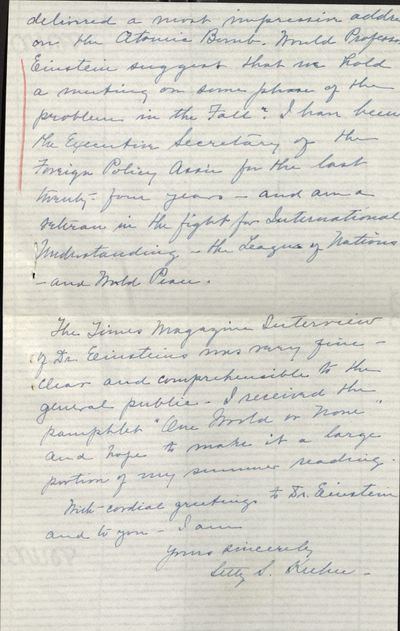 delivered a most impressive addre
on the Atomic Bomb. Would Professo
Einstein suggest that we hold
a meeting on some phase of the
problem in the Fall? I have been
the Executive Secretary of the
Foreign Policy Assn for the last
twenty-four years - and am a
veteran in the fight for International
Understanding - the League of Nations
- and World Peace.
The Times Magazine Interview
of Dr. Einsteins was very fine -
clear and comprehensible to the
general public - I received the
pamphlet "One World or None"
and hope to make it a large
portion of my summer reading.
With cordial greetings to Dr. Einstein
and to you - I am
Yours sincerely
S.